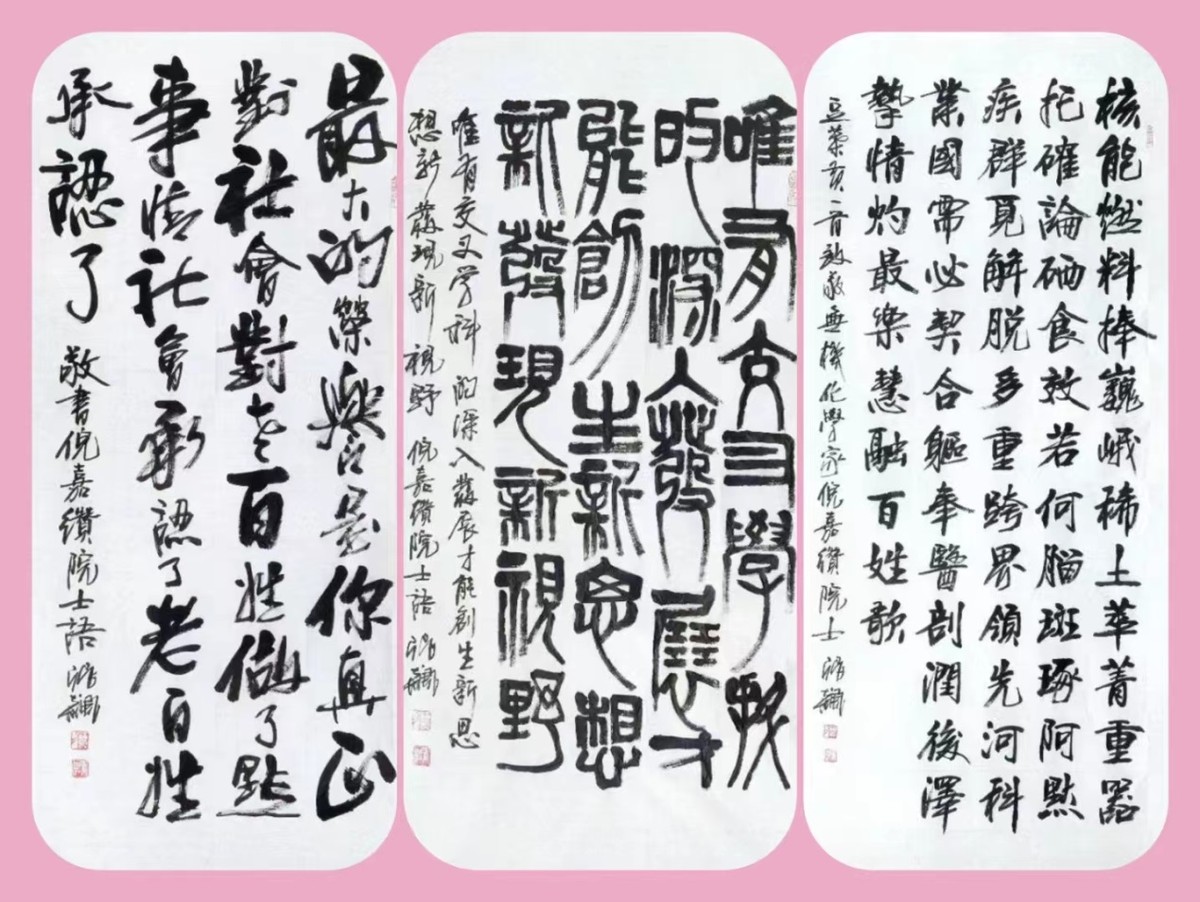 核能燃料捧巍峨稀土萃菁重器
托確論硒食效若何腦斑琢阿默
疾群覓解脫多重跨界領先河科
業國需必契合軀奉醫剖潤後澤
摯情灼最樂慧融百姓歌
音致敬無機化學家倪嘉纘院士
唯有交叉學科
的深入發展才
能創生新思想
新發現新視野
唯有交叉学科的深入發展才能創生新思
想新發現新視野 倪嘉纘院士語
最大的榮譽是你真正
對社會對老百姓做了點
事情社會承認了老百姓
承認了 敬書倪嘉纘院士語